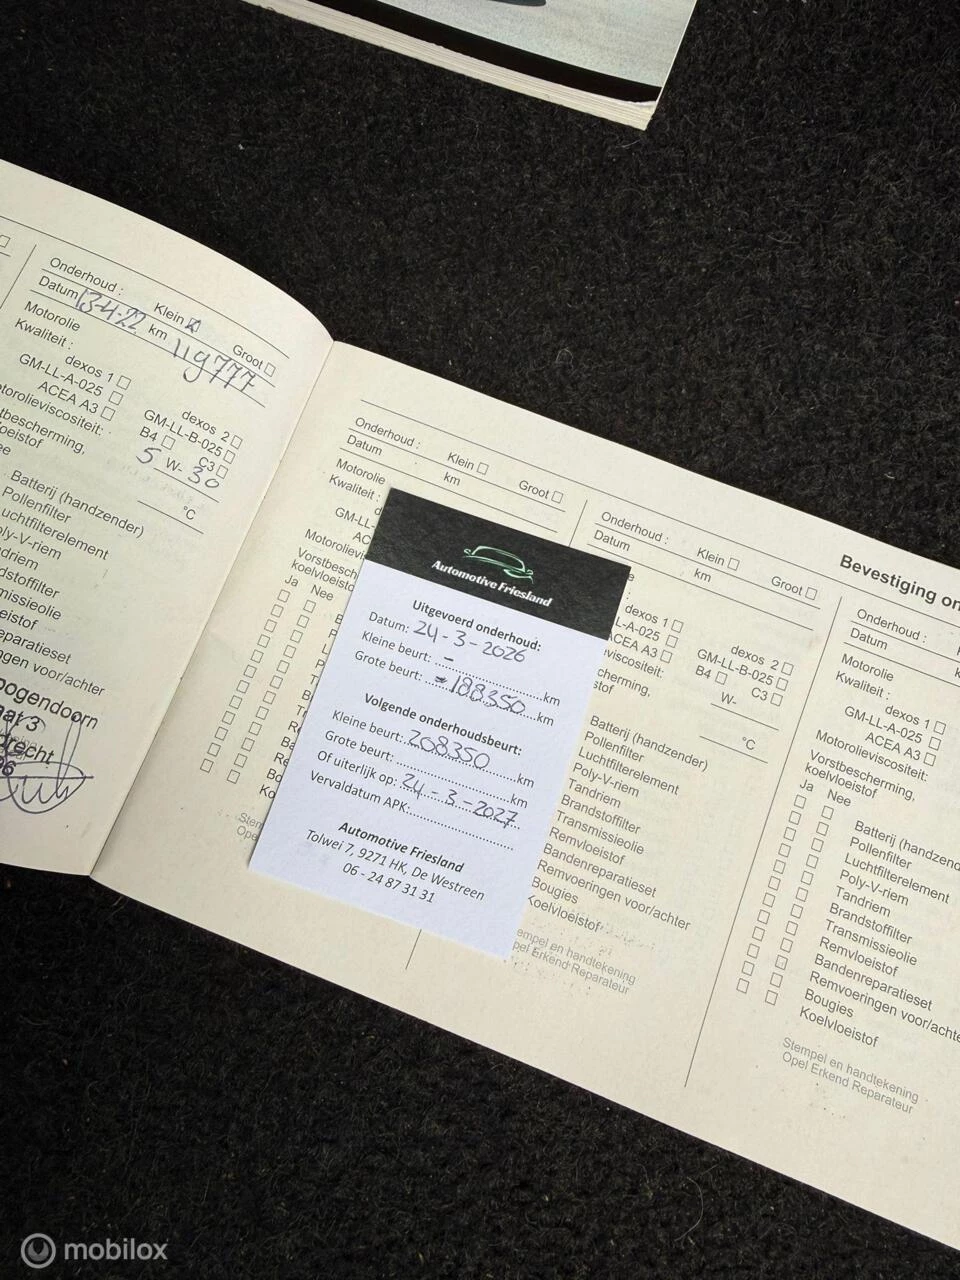 Onderhoud : Klein Groot
Datum 13-4-22 km 119777
Motorolie
Kwaliteit :
dexos 1 dexos 2
GM-LL-A-025 GM-LL-B-025
ACEA A3 B4 C3
otorolieviscositeit: 5 W- 30
tbescherming,
loeistof °C
ee
Batterij (handzender)
Pollenfilter
uchtfilterelement
oly-V-riem
ndriem
ndstoffilter
smissieolie
eistof
eparatieset
ngen voor/achter
oogendoorn
aat 3
drecht
96
Onderhoud : Klein Groot
Datum km
Motorolie
Kwaliteit :
GM-LL-
AC
Motorolievi
Vorstbescherm
koelvloeistof
Ja Nee
Stem
Opel
Automotive Friesland
Uitgevoerd onderhoud:
Datum: 24-3-2026
Kleine beurt: - km
Grote beurt: 188350 km
Volgende onderhoudsbeurt:
Kleine beurt: 208350 km
Grote beurt: km
Of uiterlijk op: 24-3-2027
Vervaldatum APK:
Automotive Friesland
Tolwei 7, 9271 HK, De Westreen
06 - 24 87 31 31
Onderhoud : Klein Groot
Datum km
dexos 1 dexos 2
L-A-025 GM-LL-B-025
ACEA A3 B4 C3
eviscositeit: W-
cherming,
stof °C
Batterij (handzender)
Pollenfilter
Luchtfilterelement
Poly-V-riem
Tandriem
Brandstoffilter
Transmissieolie
Remvloeistof
Bandenreparatieset
Remvoeringen voor/achter
Bougies
Koelvloeistof
empel en handtekening
pel Erkend Reparateur
Bevestiging on
Onderhoud :
Datum km
Motorolie
Kwaliteit :
dexos 1
GM-LL-A-025
ACEA A3
Motorolieviscositeit:
Vorstbescherming,
koelvloeistof
Ja Nee
Batterij (handzend
Pollenfilter
Luchtfilterelement
Poly-V-riem
Tandriem
Brandstoffilter
Transmissieolie
Remvloeistof
Bandenreparatieset
Remvoeringen voor/achte
Bougies
Koelvloeistof
Stempel en handtekening
Opel Erkend Reparateur
mobilox